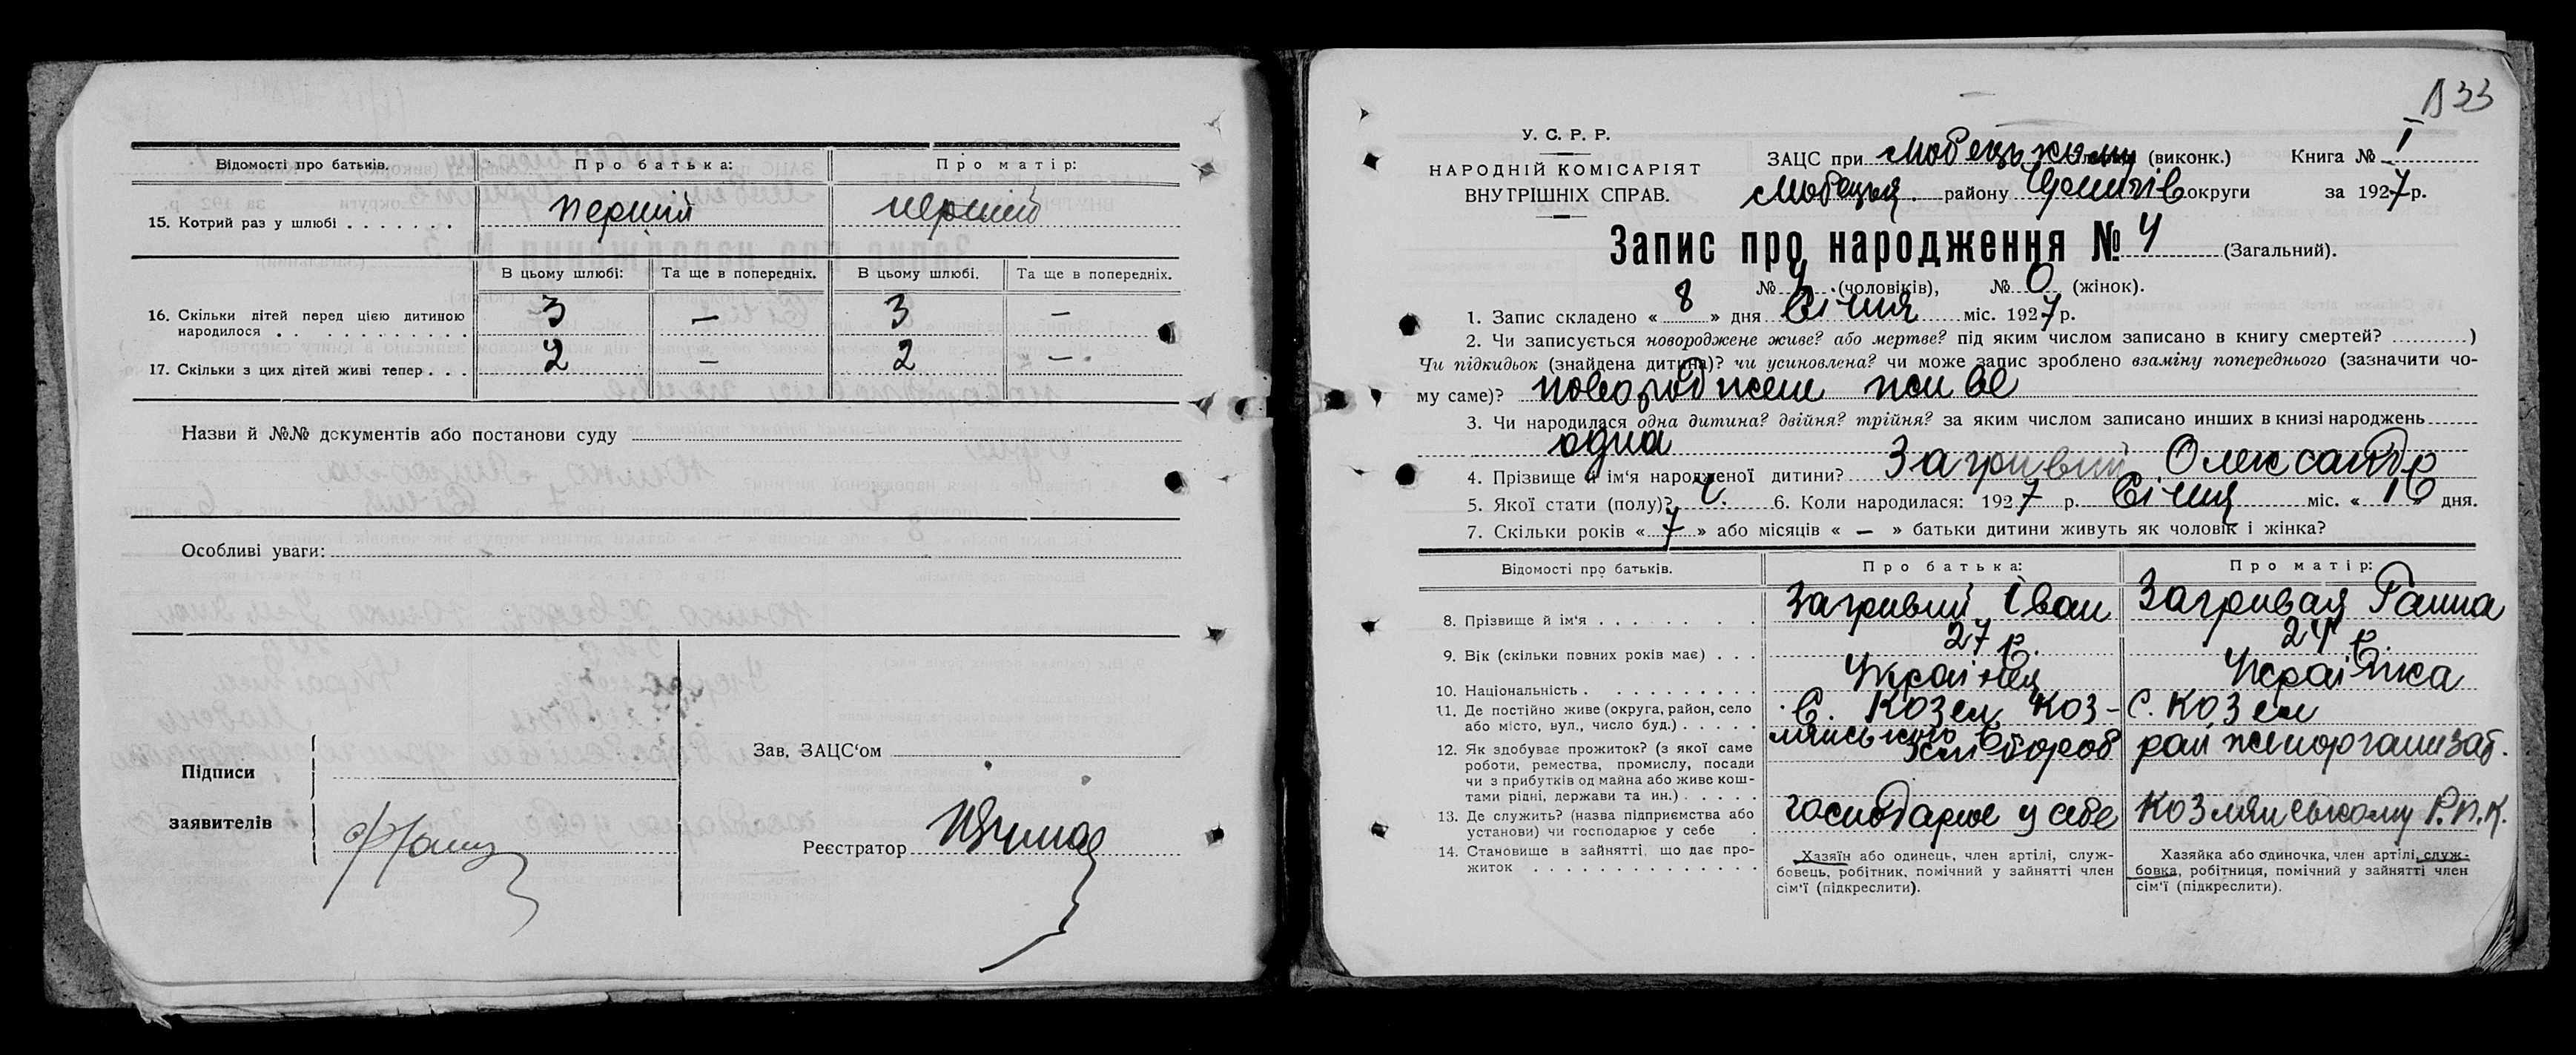 Відомості про батьків. Про батька: Про матір:
15. Котрий раз у шлюбі . . . . . . . першій перший
В цьому шлюбі: Та ще в попередніх. В цьому шлюбі. Та ще в попередніх.
16. Скільки дітей перед цією дитиною
народилося . . . . . . . . . . . 3 — 3 —
17. Скільки з цих дітей живі тепер . . . 2 — 2 —
Назви й №№ документів або постанови суду
Особливі уваги:
Підписи
заявителів
Зав. ЗАЦС‘ом
Реєстратор
133
У. С. Р. Р.
НАРОДНІЙ КОМІСАРІЯТ
ВНУТРІШНІХ СПРАВ.
ЗАЦС при (виконк.) Книга № 1
району округи за 1927 р.
Запис про народження № 4 (Загальний).
№ 4 (чоловіків), № 0 (жінок).
1. Запис складено « 8 » дня Січня міс. 1927 р.
2. Чи записується новороджене живе? або мертве? під яким числом записано в книгу смертей? )
Чи підкидьок (знайдена дитина)? чи усиновлена? чи може запис зроблено взаміну попереднього (зазначити чо-
му саме)? новороджене живе
3. Чи народилася одна дитина? двійня? трійня? за яким числом записано инших в книзі народжень
одна
4. Прізвище й ім‘я народженої дитини? Загривий Олександр
5. Якої стати (полу)? ч. 6. Коли народилася: 1927 р. Січня міс. « 1 » дня.
7. Скільки років « 7 » або місяців « — » батьки дитини живуть як чоловік і жінка?
Відомості про батьків. Про батька: Про матір:
8. Прізвище й ім‘я . . . . . . . . Загривий Іван Загривая Ганна
9. Вік (скільки повних років має) . . . 27 р. 24 р.
10. Національність . . . . . . . . . . Українец Українка
11. Де постійно живе (округа, район, село
або місто, вул., число буд.) . . . . . С. Козел Коз- С. Козел
лянського
12. Як здобуває прожиток? (з якої саме
роботи, ремества, промислу, посади
чи з прибутків од майна або живе кош-
тами рідні, держави та ин.) . . . . . хлібороб райженорганизат.
13. Де служить? (назва підприємства або
установи) чи господарює у себе . господарює у себе Козлянському Р.П.К.
14. Становище в зайнятті, що дає про-
житок . . . . . . . . . . . . . .
Хазяїн або одинець, член артілі, служ-
бовець, робітник, помічний у зайнятті член
сім‘ї (підкреслити).
Хазяйка або одиночка, член артілі, служ-
бовка, робітниця, помічний у зайнятті член
сім‘ї (підкреслити).